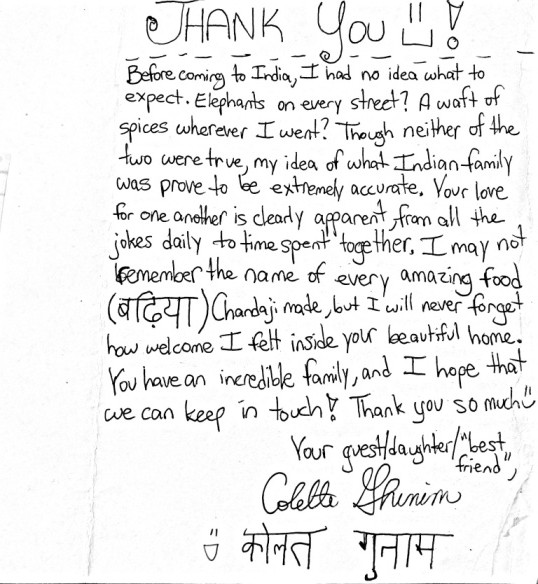 THANK You!
Before coming to India, I had no idea what to
expect. Elephants on every street? A waft of
spices wherever I went? Though neither of the
two were true, my idea of what Indian family
was prove to be extremely accurate. Your love
for one another is clearly apparent, from all the
jokes daily to time spent together. I may not
remember the name of every amazing food
(बढ़िया) Chandaji made, but I will never forget
how welcome I felt inside your beautiful home.
You have an incredible family, and I hope that
we can keep in touch! Thank you so much
Your guest/daughter/"best
friend",
Colette Ghunim
कोलत गुनाम